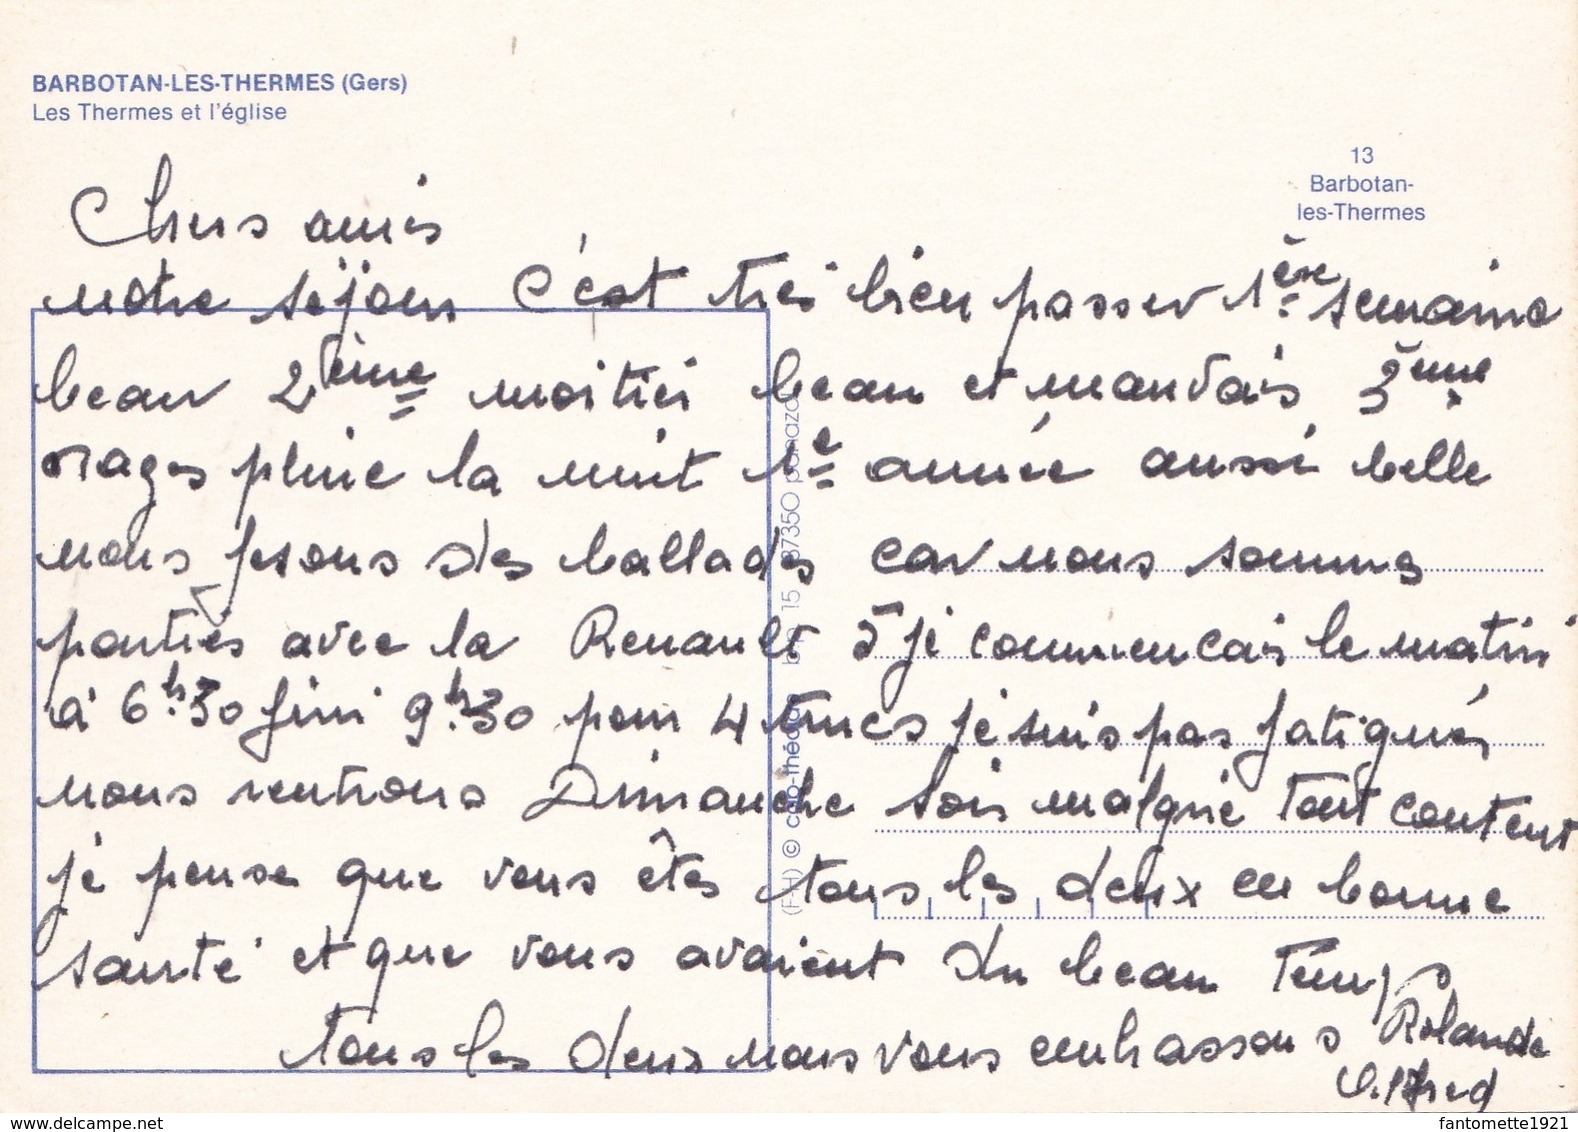 BARBOTAN-LES-THERMES (Gers)
Les Thermes et l'église
13
Barbotan-
les-Thermes
Chers amis
notre séjour c'est très bien passer 1ère semaine
beau 2ème moitiés beau et mauvais 3ème
orages pluie la nuit 1e année aussi belle
nous fesons des ballades car nous sommes
parties avec la Renault 5 je commencais le matin
à 6h30 fini 9h30 pour 4 trucs je suis pas fatigués
nous rentrons Dimanche soir malgré tout content
je pense que vous êtes tous les deux en bonne
santé et que vous avaient du beau temps
tous les deux nous vous embrassons Rolande
Alfred
(F-H) © cap-théojac bp 15 87350 panazol
www.delcampe.net
fantomette1921